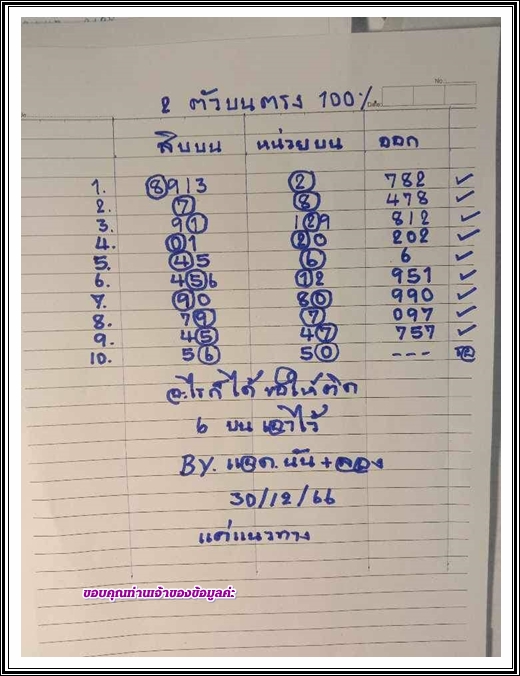 No:
2 ตัวบนตรง 100% Date:
สิบบน หน่วยบน ออก
1. 8913 2 782 ✓
2. 7 8 478 ✓
3. 91 129 812 ✓
4. 01 20 202 ✓
5. 45 6 6 ✓
6. 456 12 951 ✓
7. 90 80 990 ✓
8. 79 7 097 ✓
9. 45 47 757 ✓
10. 56 50 ---
อะไรก็ได้ ขอให้ติด
6 บน เอาไว้
BY. แอด.นัน +
30/12/66
แค่แนวทาง
ขอบคุณท่านเจ้าของข้อมูลค่ะ